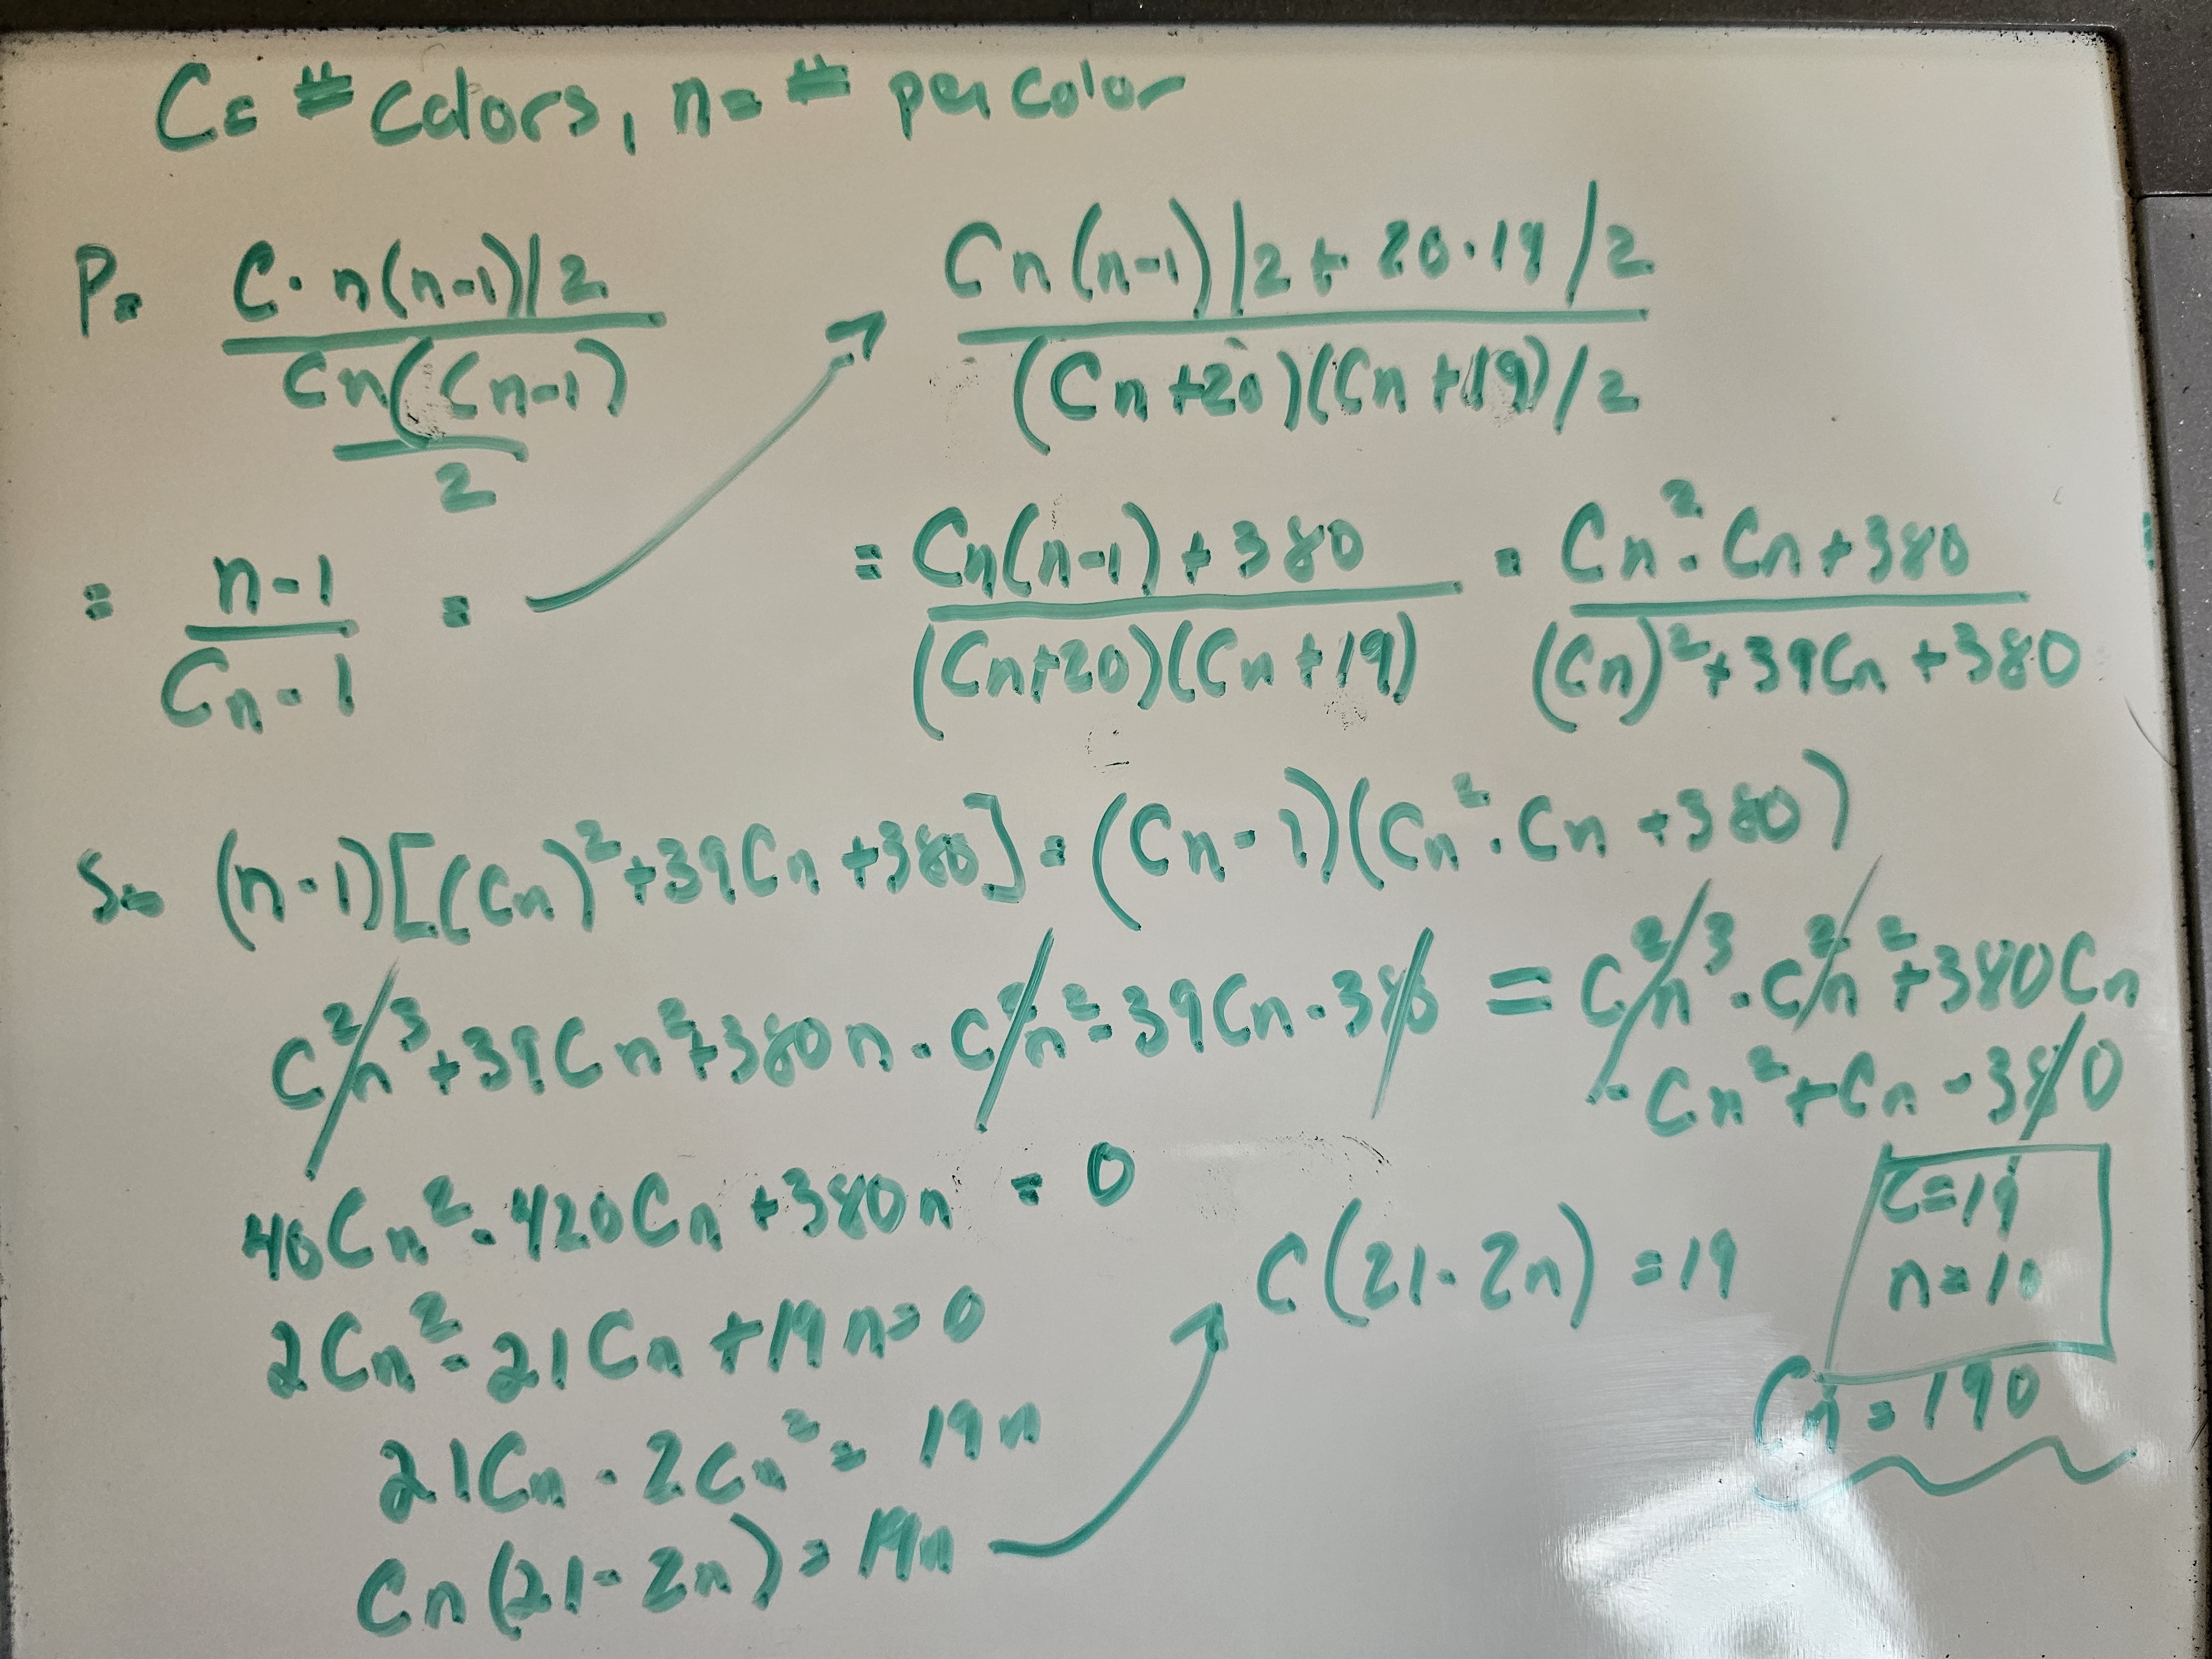 C = # colors, n = # per color
P = (C · n(n-1)/2) / (Cn(Cn-1)/2)
(Cn(n-1)/2 + 20·19/2) / ((Cn+20)(Cn+19)/2)
= (n-1)/(Cn-1) =
= (Cn(n-1)+380) / ((Cn+20)(Cn+19)) = (Cn²-Cn+380) / ((Cn)²+39Cn+380)
So (n-1)[(Cn)²+39Cn+380] = (Cn-1)(Cn²-Cn+380)
C²n³+39Cn²+380n-C²n²-39Cn-380 = C²n³-C²n²+380Cn
-Cn²+Cn-380
40Cn²-420Cn+380n = 0
2Cn²-21Cn+19n=0
21Cn-2Cn²=19n
Cn(21-2n)=19n
C(21-2n)=19
C=19
n=10
Cn=190